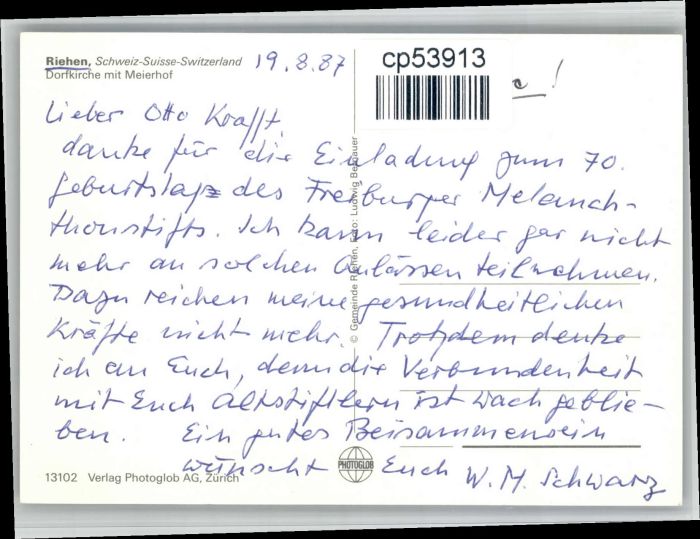 Riehen, Schweiz-Suisse-Switzerland 19.8.87
Dorfkirche mit Meierhof
cp53913
Lieber Otto Krafft,
danke für die Einladung zum 70.
Geburtstag des Freiburger Melanch-
thonstifts. Ich kann leider gar nicht
mehr an solchen Anlässen teilnehmen.
Dazu reichen meine gesundheitlichen
Kräfte nicht mehr. Trotzdem denke
ich an Euch, denn die Verbundenheit
mit Euch Altstiftlern ist wach geblie-
ben. Ein gutes Beisammensein
wünscht Euch W. M. Schwarz
© Gemeinde Riehen, Foto: Ludwig
PHOTOGLOB
13102 Verlag Photoglob AG, Zürich